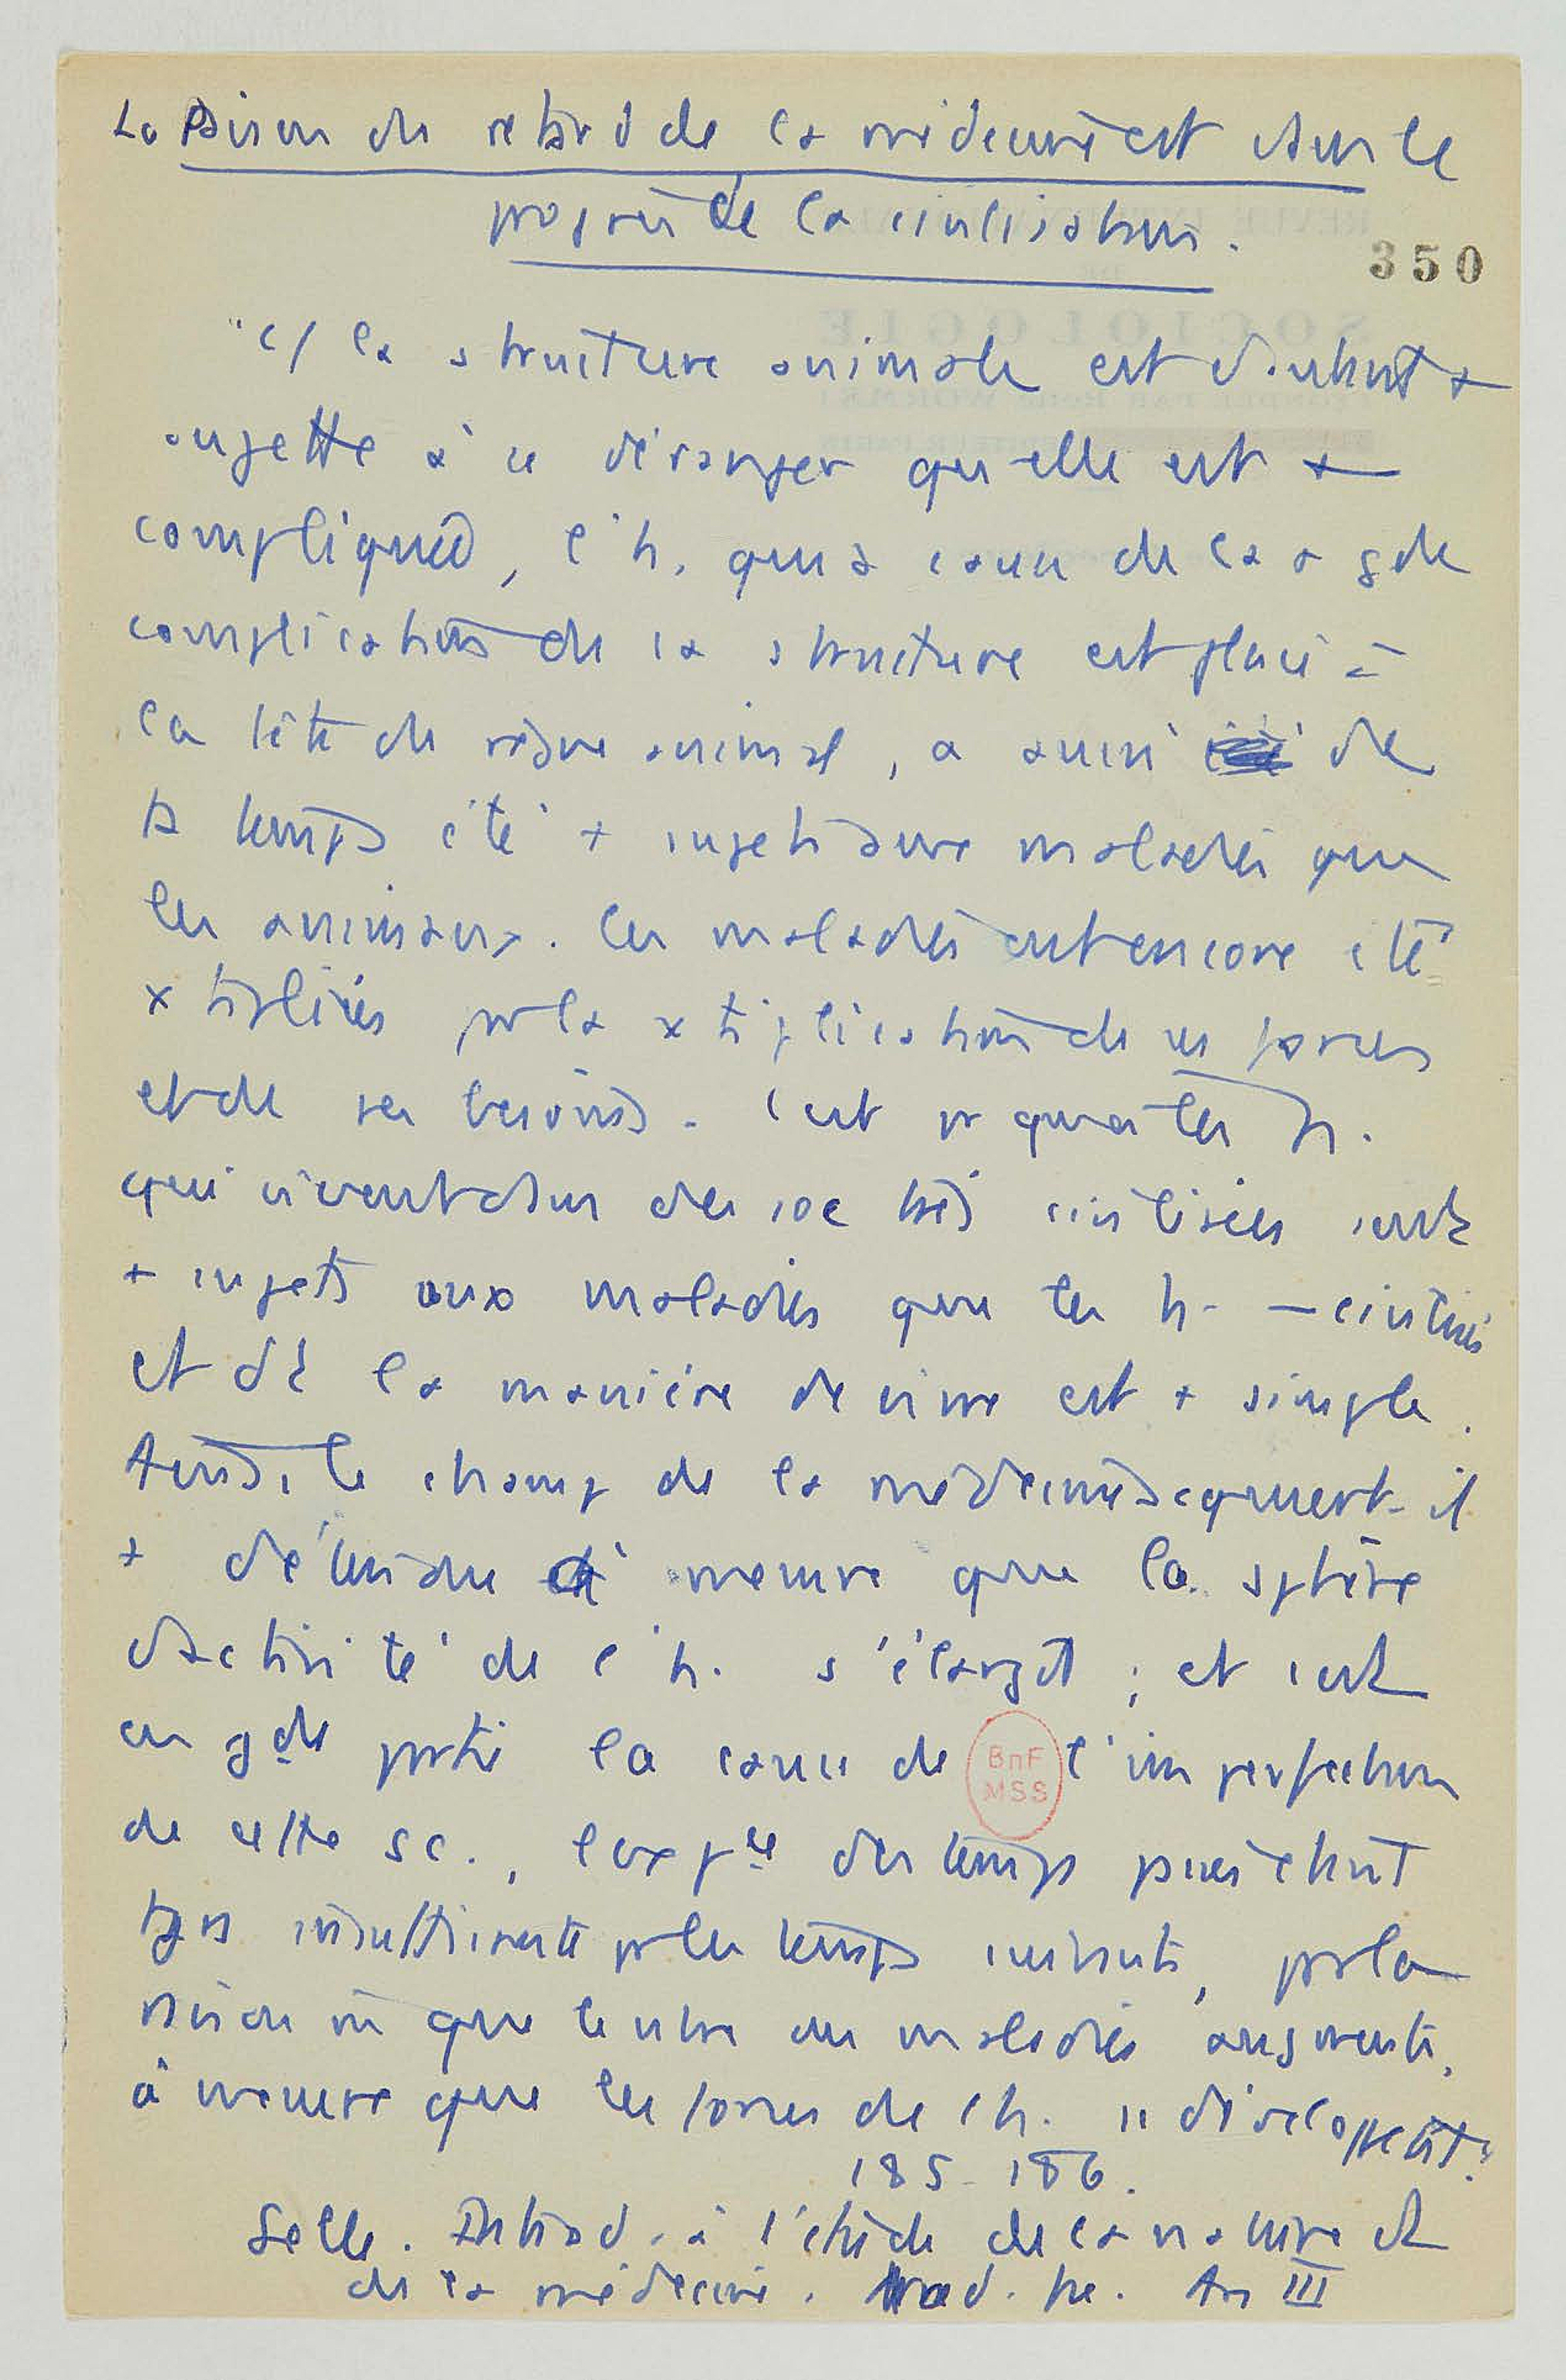 La raison du retard de la médecine est dans le
progrès de la civilisation.
350
"c/ la structure animale est d'autant +
sujette à se déranger qu'elle est +
compliquée, l'h. qui à cause de la + gde
complication de sa structure est placé à
la tête du règne animal, a aussi de
ts temps été + sujet à divers maladies que
les animaux. Ces maladies ont encore été
× tipliées pr la × tiplication de ses forces
et de ses besoins. C'est pr quoi les h.
qui vivent dans des soc très civilisées sont
+ sujets aux maladies que les h. - civilisés
et dt la manière de vivre est + simple.
Aussi, le champ de la médecine acquiert-il
+ d'étendue à mesure que la sphère
d'activité de l'h. s'élargit ; et c'est
en gde partie la cause de l'imperfection
de cette sc., l'expce des temps passés étant
tjrs insuffisante pr les temps suivants, pr la
raison que le nbre des maladies augmente,
à mesure que les forces de l'h. se développent."
185-186.
Selle. Introd. à l'étude de la nature et
de la médecine. trad. fse. An III
BnF
MSS